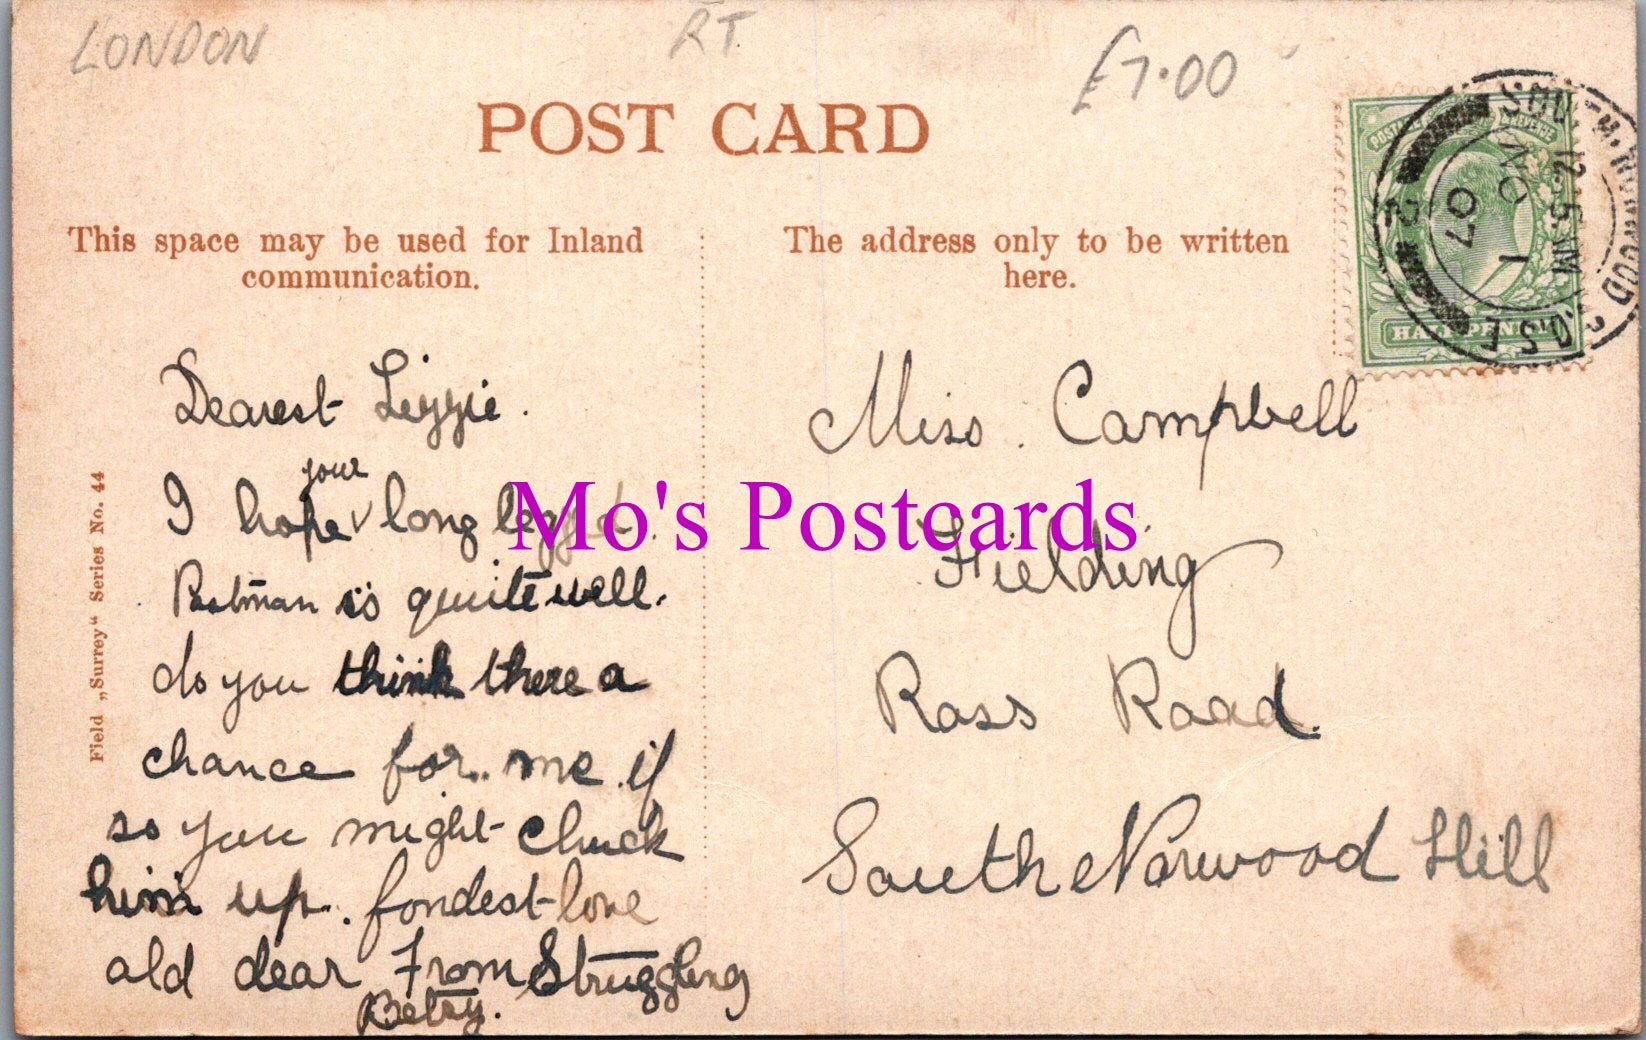 LONDON
RT
£7.00
POST CARD
This space may be used for Inland
communication.
The address only to be written
here.
POSTAGE
REVENUE
HALFPENNY
SOUTH NORWOOD S.O.S.E
12.15 PM
NO 1
07
2
Field „Surrey“ Series No. 44
Dearest Lizzie.
I hope your long legged
Postman is quite well.
do you think there a
chance for.. me if
so you might chuck
him up. fondest love
old dear From Struggling
Betsy.
Miss. Campbell
Fielding
Ross Road.
South Norwood Hill
Mo's Postcards